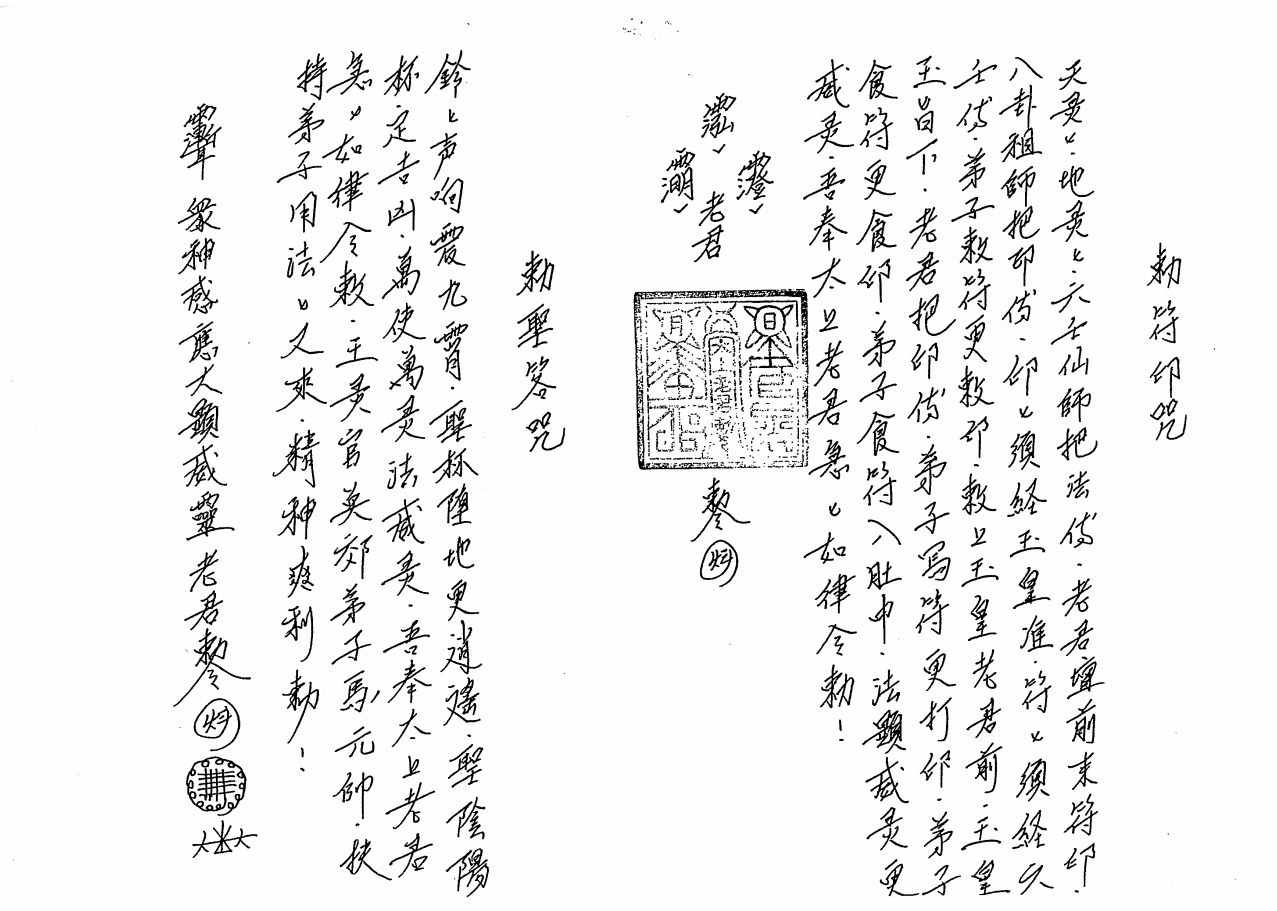 勅符印咒
天灵々.地灵々.六壬仙師把法傳.老君壇前来符印.
八卦祖師把印傳.印々須経玉皇准.符々須経六
壬傳.弟子敕符更敕印.敕上玉皇老君前.玉皇
玉旨下.老君把印傳.弟子写符更打印.弟子
食符更食印.弟子食符入肚中.法顯威灵更
威灵.吾奉太上老君急々如律令勅!
老君
敕令
勅聖筶咒
鈴々声响震九霄.聖杯墮地更逍遙.聖陰陽
杯.定吉凶.萬使萬灵法威灵.吾奉太上老君
急々如律令敕.王灵官 弟子馬元帥.扶
持弟子用法々又来.精神爽利勅!
眾神感應大顯威靈老君勅令